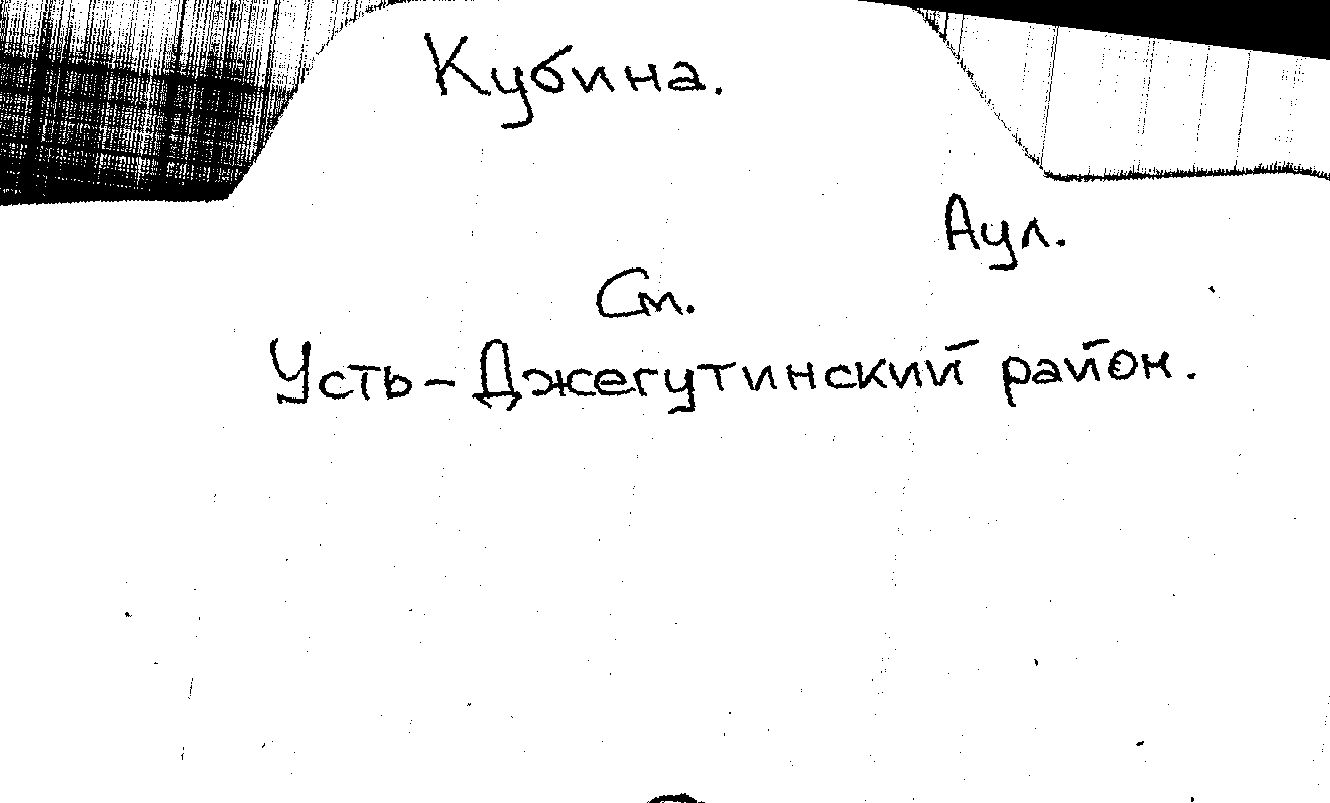 Кубина.
Аул.
Ст.
Усть-Джегутинский район.